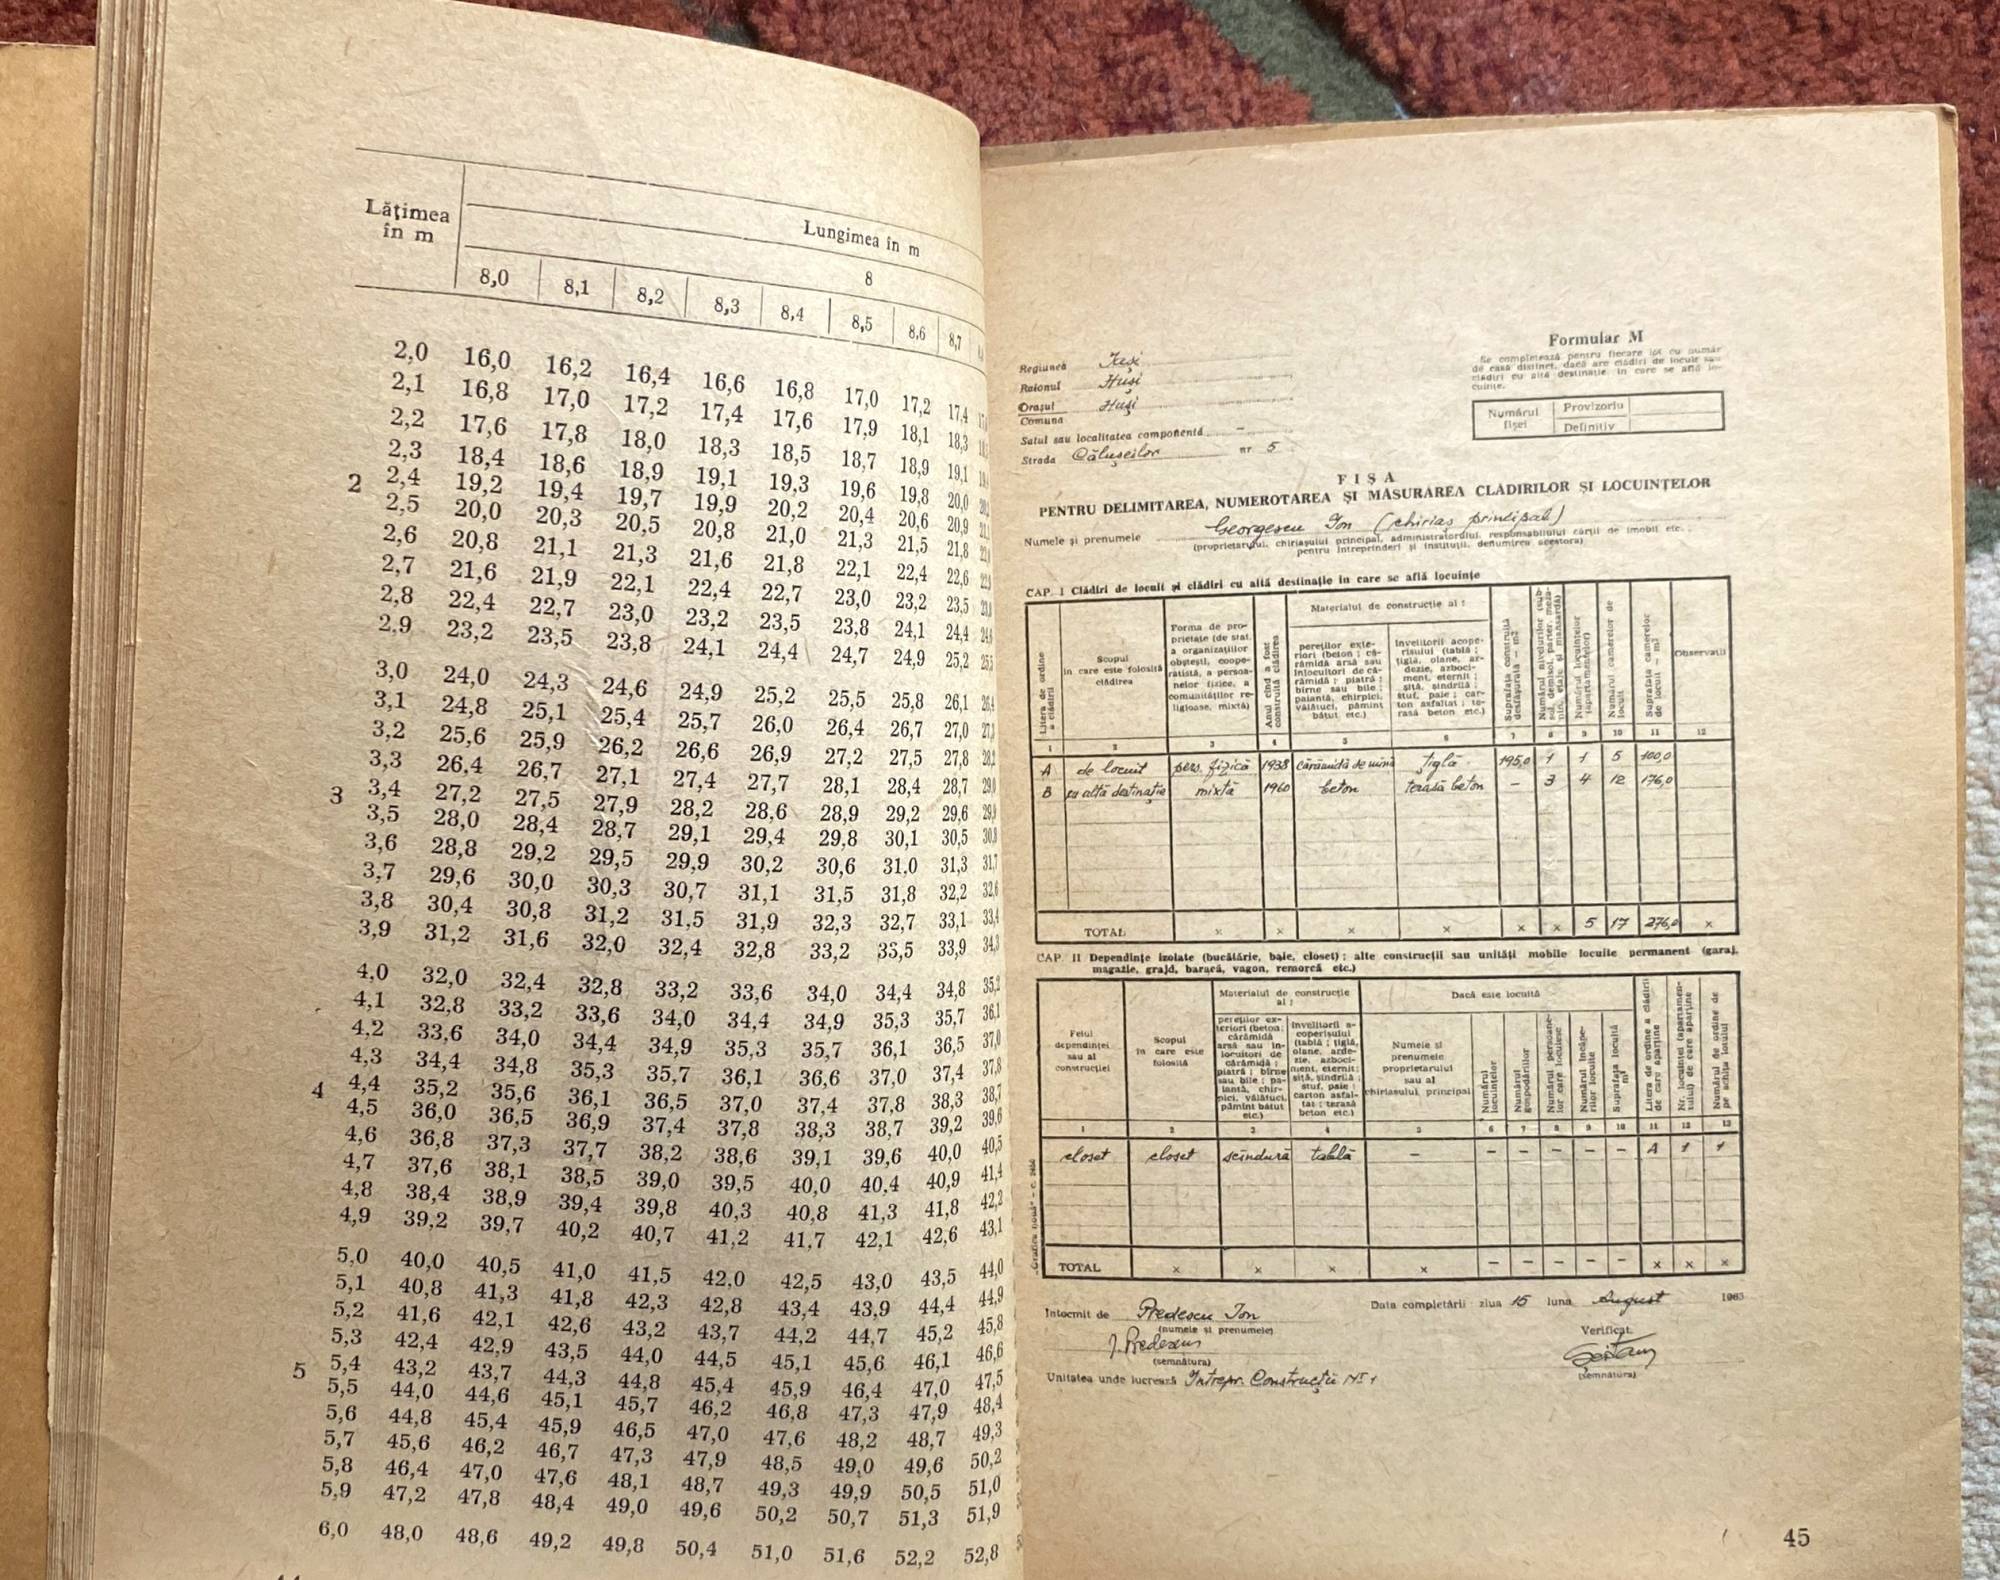 Lățimea
în m
Lungimea în m
8
8,0 8,1 8,2 8,3 8,4 8,5 8,6 8,7
2,0 16,0 16,2 16,4 16,6 16,8 17,0 17,2 17,4
2,1 16,8 17,0 17,2 17,4 17,6 17,9 18,1 18,3
2,2 17,6 17,8 18,0 18,3 18,5 18,7 18,9 19,1
2,3 18,4 18,6 18,9 19,1 19,3 19,6 19,8 20,0
2 2,4 19,2 19,4 19,7 19,9 20,2 20,4 20,6 20,9
2,5 20,0 20,3 20,5 20,8 21,0 21,3 21,5 21,8
2,6 20,8 21,1 21,3 21,6 21,8 22,1 22,4 22,6
2,7 21,6 21,9 22,1 22,4 22,7 23,0 23,2 23,5
2,8 22,4 22,7 23,0 23,2 23,5 23,8 24,1 24,4
2,9 23,2 23,5 23,8 24,1 24,4 24,7 24,9 25,2
3,0 24,0 24,3 24,6 24,9 25,2 25,5 25,8 26,1 26,4
3,1 24,8 25,1 25,4 25,7 26,0 26,4 26,7 27,0
3,2 25,6 25,9 26,2 26,6 26,9 27,2 27,5 27,8 28,2
3,3 26,4 26,7 27,1 27,4 27,7 28,1 28,4 28,7 29,0
3 3,4 27,2 27,5 27,9 28,2 28,6 28,9 29,2 29,6 29,9
3,5 28,0 28,4 28,7 29,1 29,4 29,8 30,1 30,5 30,8
3,6 28,8 29,2 29,5 29,9 30,2 30,6 31,0 31,3 31,7
3,7 29,6 30,0 30,3 30,7 31,1 31,5 31,8 32,2 32,6
3,8 30,4 30,8 31,2 31,5 31,9 32,3 32,7 33,1 33,4
3,9 31,2 31,6 32,0 32,4 32,8 33,2 33,5 33,9 34,3
4,0 32,0 32,4 32,8 33,2 33,6 34,0 34,4 34,8 35,2
4,1 32,8 33,2 33,6 34,0 34,4 34,9 35,3 35,7 36,1
4,2 33,6 34,0 34,4 34,9 35,3 35,7 36,1 36,5 37,0
4,3 34,4 34,8 35,3 35,7 36,1 36,6 37,0 37,4 37,8
4 4,4 35,2 35,6 36,1 36,5 37,0 37,4 37,8 38,3 38,7
4,5 36,0 36,5 36,9 37,4 37,8 38,3 38,7 39,2 39,6
4,6 36,8 37,3 37,7 38,2 38,6 39,1 39,6 40,0 40,5
4,7 37,6 38,1 38,5 39,0 39,5 40,0 40,4 40,9 41,4
4,8 38,4 38,9 39,4 39,8 40,3 40,8 41,3 41,8 42,2
4,9 39,2 39,7 40,2 40,7 41,2 41,7 42,1 42,6 43,1
5,0 40,0 40,5 41,0 41,5 42,0 42,5 43,0 43,5 44,0
5,1 40,8 41,3 41,8 42,3 42,8 43,4 43,9 44,4 44,9
5,2 41,6 42,1 42,6 43,2 43,7 44,2 44,7 45,2 45,8
5,3 42,4 42,9 43,5 44,0 44,5 45,1 45,6 46,1 46,6
5 5,4 43,2 43,7 44,3 44,8 45,4 45,9 46,4 47,0 47,5
5,5 44,0 44,6 45,1 45,7 46,2 46,8 47,3 47,9 48,4
5,6 44,8 45,4 45,9 46,5 47,0 47,6 48,2 48,7 49,3
5,7 45,6 46,2 46,7 47,3 47,9 48,5 49,0 49,6 50,2
5,8 46,4 47,0 47,6 48,1 48,7 49,3 49,9 50,5 51,0
5,9 47,2 47,8 48,4 49,0 49,6 50,2 50,7 51,3 51,9
6,0 48,0 48,6 49,2 49,8 50,4 51,0 51,6 52,2 52,8
Formular M
Se completează pentru fiecare lot cu număr
de casă distinct, dacă are clădiri de locuit sau
clădiri cu altă destinație în care se află lo-
cuințe.
Numărul fișei Provizoriu
Definitiv
Regiunea Iași
Raionul Huși
Orașul Huși
Comuna
Satul sau localitatea componentă –
Strada nr 5
FIȘA
PENTRU DELIMITAREA, NUMEROTAREA ȘI MĂSURAREA CLĂDIRILOR ȘI LOCUINȚELOR
Numele și prenumele Georgescu Ion (chiriaș principal)
(proprietarului, chiriașului principal, administratorului, responsabilului cărții de imobil etc.
pentru întreprinderi și instituții, denumirea acestora)
CAP. I Clădiri de locuit și clădiri cu altă destinație în care se află locuințe
Litera de ordine a clădirii
Scopul
în care este folosită
clădirea
Forma de pro-
prietate (de stat,
a organizațiilor
obștești, coope-
ratistă, a persoa-
nelor fizice, a
comunităților re-
ligioase, mixtă)
Anul cînd a fost construită clădirea
Materialul de construcție al :
pereților exte-
riori (beton ; că-
rămidă arsă sau
înlocuitori de că-
rămidă ; piatră ;
bîrne sau bile ;
paiantă, chirpici,
vălătuci, pămînt
bătut etc.)
învelitorii acope-
rișului (tablă ;
țiglă, olane, ar-
dezie, azboci-
ment, eternit ;
șiță, șindrilă ;
stuf, paie ; car-
ton asfaltat ; te-
rasă beton etc.)
Suprafața construită desfășurată — m2
Numărul nivelurilor (sub-
sol, demisol, parter, meza-
nin, etaje și mansardă)
Numărul locuințelor (apartamentelor)
Numărul camerelor de locuit
Suprafața camerelor de locuit — m2
Observații
1 2 3 4 5 6 7 8 9 10 11 12
A de locuit pers. fizică 1938 cărămidă de mînă țiglă 195,0 1 1 5 100,0
B cu altă destinație mixtă 1960 beton terasă beton – 3 4 12 176,0
TOTAL × × × × × × 5 17 276,0 ×
CAP. II Dependințe izolate (bucătărie, baie, closet) ; alte construcții sau unități mobile locuite permanent (garaj,
magazie, grajd, baracă, vagon, remorcă etc.)
Felul
dependinței
sau al
construcției
Scopul
în care este
folosită
Materialul de construcție
al :
pereților ex-
teriori (beton;
cărămidă
arsă sau în-
locuitori de
cărămidă ;
piatră ; bîrne
sau bile ; pa-
iantă, chir-
pici, vălătuci,
pămînt bătut
etc.)
învelitorii a-
coperișului
(tablă ; țiglă,
olane, arde-
zie, azboci-
ment, eternit;
șiță, șindrilă ;
stuf, paie ;
carton asfal-
tat ; terasă
beton etc.)
Dacă este locuită
Numele și
prenumele
proprietarului
sau al
chiriașului principal
Numărul locuințelor
Numărul gospodăriilor
Numărul persoane-
lor care locuiesc
Numărul încăpe-
rilor locuite
Suprafața locuită m2
Litera de ordine a clădirii
de care aparține
Nr. locuinței (apartamen-
tului) de care aparține
Numărul de ordine de
pe schița locului
1 2 3 4 5 6 7 8 9 10 11 12 13
closet closet scîndură tablă – – – – – – A 1 1
TOTAL × × × × – – – – – × × ×
Întocmit de Predescu Ion
(numele și prenumele)
I. Predescu
(semnătura)
Unitatea unde lucrează Întrepr. Construcții Nr 1
Data completării : ziua 15 luna August 1963
Verificat,
(semnătura)
45